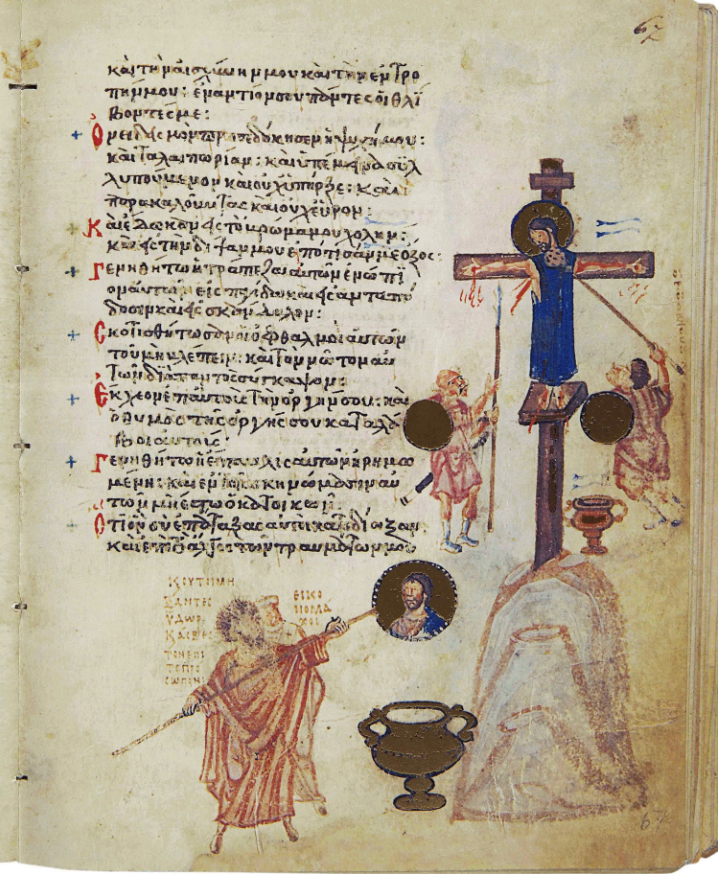 67
καὶ τὴν αἰσχύνην μου καὶ τὴν ἐντρο
πήν μου: ἐναντίον σου πάντες οἱ θλί
βοντές με:
Ὀνειδισμὸν προσεδόκησεν ἡ ψυχή μου:
καὶ ταλαιπωρίαν: καὶ ὑπέμεινα συλ
λυπούμενον καὶ οὐχ ὑπῆρξε: καὶ
παρακαλοῦντας καὶ οὐχ εὗρον:
Καὶ ἔδωκαν εἰς τὸ βρῶμά μου χολήν:
καὶ εἰς τὴν δίψαν μου ἐπότισάν με ὄξος:
Γενηθήτω ἡ τράπεζα αὐτῶν ἐνώπι
ον αὐτῶν εἰς παγίδα καὶ εἰς ἀνταπό
δοσιν καὶ εἰς σκάνδαλον:
Σκοτισθήτωσαν οἱ ὀφθαλμοὶ αὐτῶν
τοῦ μὴ βλέπειν: καὶ τὸν νῶτον αὐ
τῶν διὰ παντὸς σύγκαψον:
Ἔκχεον ἐπ αὐτοὺς τὴν ὀργήν σου: καὶ
ὁ θυμὸς τῆς ὀργῆς σου καταλά
βοι αὐτούς:
Γενηθήτω ἡ ἔπαυλις αὐτῶν ἠρημω
μένη: καὶ ἐν τοῖς σκηνώμασιν αὐ
τῶν μὴ ἔστω ὁ κατοικῶν:
Ὅτι ὃν σὺ ἐπάταξας αὐτοὶ κατεδίωξαν
καὶ ἐπὶ τὸ ἄλγος τῶν τραυμάτων μου
ΞΑΝΤΕΣ
ΥΔΩΡ
ΤΟΝ ΕΠΙ
ΤΟ ΠΡΟ
ΣΩΠΟΝ
ΕΙΚΟ
ΝΟΜΑ
ΧΟΙ
67